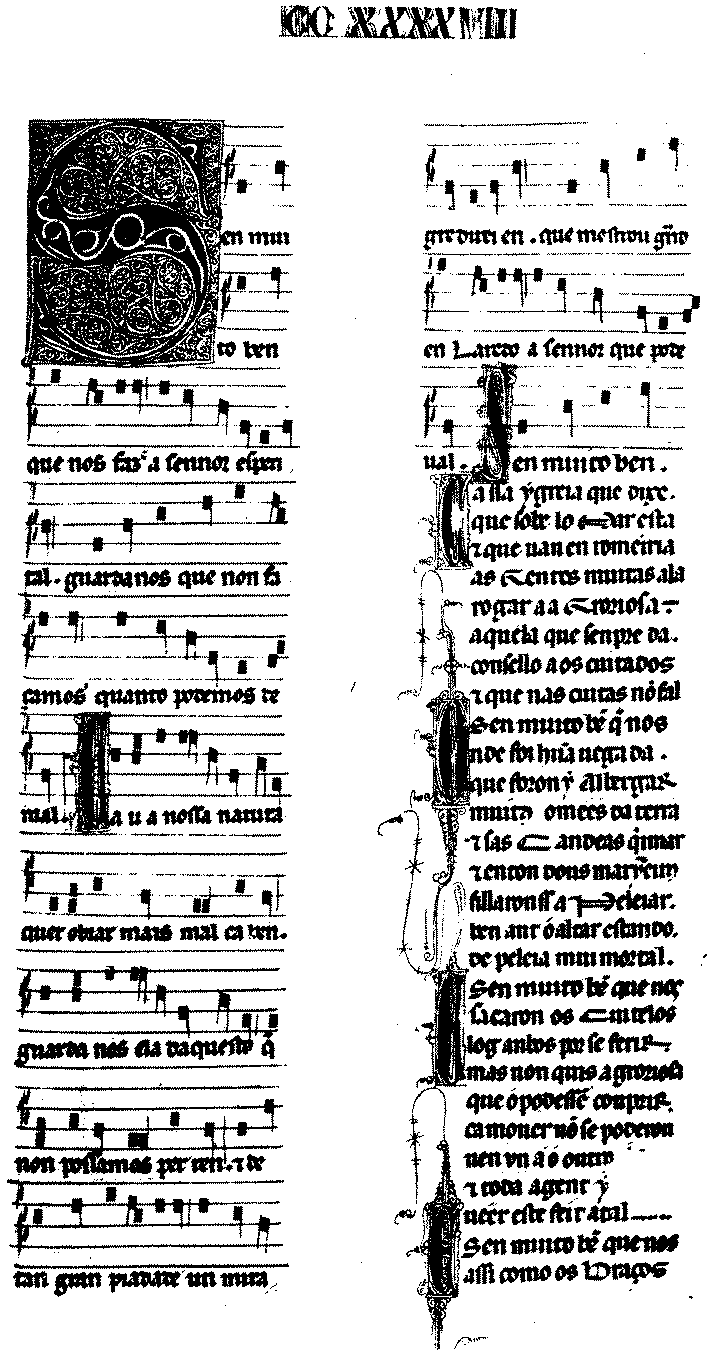 CC XXXXVIII
Sen mui
to ben
que nos faz a sennor espiri
tal. guardanos que non fa
çamos quanto podemos de
mal. Ca u a nossa natura
quer obrar mais mal ca ben.
guarda nos ela daquesto q̄
non possamos per ren. ⁊ de
tan gran piadade un mira
gre dur en. que mostrou gr̄no
en Laredo a sennor que pode
ual. Sen muito ben.
assi ygreia que dixe.
que sobre lo mar esta
⁊ que uan en romeria
as Gentes muitas ala
rogar a a Groriosa ⁊
aquela que senpre da.
consello aos cuitados
⁊ que nas cuitas nō fal
Sen muito bē q̄ nos
Onde foi hūa uegada.
que foron y Albergar
muitos omees da terra
⁊ sas Candeas q̄imar
⁊ enton dous
fillaronss a Peleiar.
ben ant o altar estando.
de peleia mui mortal.
Sen muito bē que nos
E sacaron os Cuitelos
log anbos por se ferir
mas non quis a groriosa
que o podessē conprir.
ca mouer nō se poderon
nen un a o outro
⁊ toda a gent y
ueer este feit atal
Sen muito bē que nos
assi como os braços